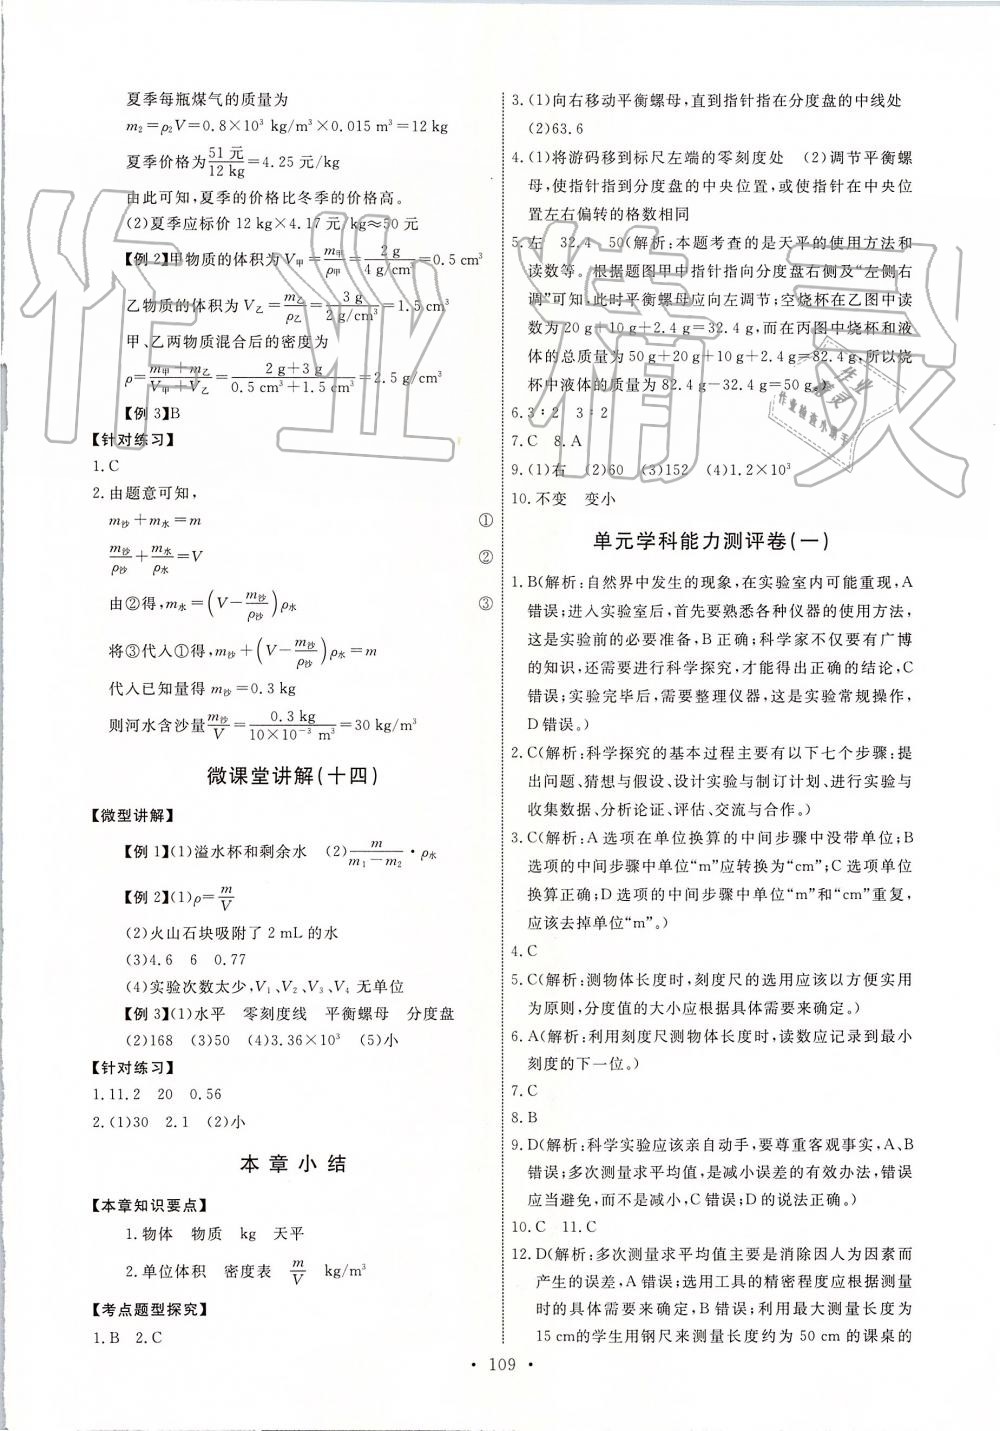 夏季每瓶煤气的质量为
m₂=ρ₂V=0.8×10³ kg/m³×0.015 m³=12 kg
夏季价格为51 元/12 kg=4.25 元/kg
由此可知，夏季的价格比冬季的价格高。
(2)夏季应标价 12 kg×4.17 元/kg≈50 元
【例 2】甲物质的体积为 V甲=m甲/ρ甲=2 g/4 g/cm³=0.5 cm³
乙物质的体积为 V乙=m乙/ρ乙=3 g/2 g/cm³=1.5 cm³
甲、乙两物质混合后的密度为
ρ=(m甲+m乙)/(V甲+V乙)=(2 g+3 g)/(0.5 cm³+1.5 cm³)=2.5 g/cm³
【例 3】B
【针对练习】
1.C
2.由题意可知，
m沙+m水=m ①
m沙/ρ沙+m水/ρ水=V ②
由②得，m水=(V-m沙/ρ沙)ρ水 ③
将③代入①得，m沙+(V-m沙/ρ沙)ρ水=m
代入已知量得 m沙=0.3 kg
则河水含沙量m沙/V=0.3 kg/10×10⁻³ m³=30 kg/m³
微课堂讲解(十四)
【微型讲解】
【例 1】(1)溢水杯和剩余水 (2)m/(m₁-m₂)·ρ水
【例 2】(1)ρ=m/V
(2)火山石块吸附了 2 mL 的水
(3)4.6 6 0.77
(4)实验次数太少，V₁、V₂、V₃、V₄ 无单位
【例 3】(1)水平 零刻度线 平衡螺母 分度盘
(2)168 (3)50 (4)3.36×10³ (5)小
【针对练习】
1.11.2 20 0.56
2.(1)30 2.1 (2)小
本章小结
【本章知识要点】
1.物体 物质 kg 天平
2.单位体积 密度表 m/V kg/m³
【考点题型探究】
1.B 2.C
3.(1)向右移动平衡螺母，直到指针指在分度盘的中线处
(2)63.6
4.(1)将游码移到标尺左端的零刻度处 (2)调节平衡螺
母，使指针指到分度盘的中央位置，或使指针在中央位
置左右偏转的格数相同
5.左 32.4 50(解析：本题考查的是天平的使用方法和
读数等。根据题图甲中指针指向分度盘右侧及“左侧右
调”可知，此时平衡螺母应向左调节；空烧杯在乙图中读
数为 20 g+10 g+2.4 g=32.4 g，而在丙图中烧杯和液
体的总质量为 50 g+20 g+10 g+2.4 g=82.4 g，所以烧
杯中液体的质量为 82.4 g-32.4 g=50 g。)
6.3∶2 3∶2
7.C 8.A
9.(1)右 (2)60 (3)152 (4)1.2×10³
10.不变 变小
单元学科能力测评卷(一)
1.B(解析：自然界中发生的现象，在实验室内可能重现，A
错误；进入实验室后，首先要熟悉各种仪器的使用方法，
这是实验前的必要准备，B 正确；科学家不仅要有广博
的知识，还需要进行科学探究，才能得出正确的结论，C
错误；实验完毕后，需要整理仪器，这是实验常规操作，
D 错误。)
2.C(解析：科学探究的基本过程主要有以下七个步骤：提
出问题、猜想与假设、设计实验与制订计划、进行实验与
收集数据、分析论证、评估、交流与合作。)
3.C(解析：A 选项在单位换算的中间步骤中没带单位；B
选项的中间步骤中单位“m”应转换为“cm”；C 选项单位
换算正确；D 选项的中间步骤中单位“m”和“cm”重复，
应该去掉单位“m”。)
4.C
5.C(解析：测物体长度时，刻度尺的选用应该以方便实用
为原则，分度值的大小应根据具体需要来确定。)
6.A(解析：利用刻度尺测物体长度时，读数应记录到最小
刻度的下一位。)
7.C
8.B
9.D(解析：科学实验应该亲自动手，要尊重客观事实，A、B
错误；多次测量求平均值，是减小误差的有效办法，错误
应当避免，而不是减小，C 错误；D 的说法正确。)
10.C 11.C
12.D(解析：多次测量求平均值主要是消除因人为因素而
产生的误差，A 错误；选用工具的精密程度应根据测量
时的具体需要来确定，B 错误；利用最大测量长度为
15 cm的学生用钢尺来测量长度约为 50 cm 的课桌的
• 109 •
作业精灵
作业
精灵
作业检查小助手